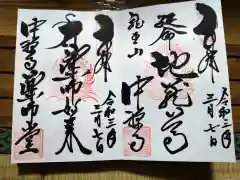 奉拝
延命地蔵尊
龍玉山
中禅寺
令和三年
三月七日
奉拝
薬師如来
中禅寺薬師堂
令和三年
三月七日